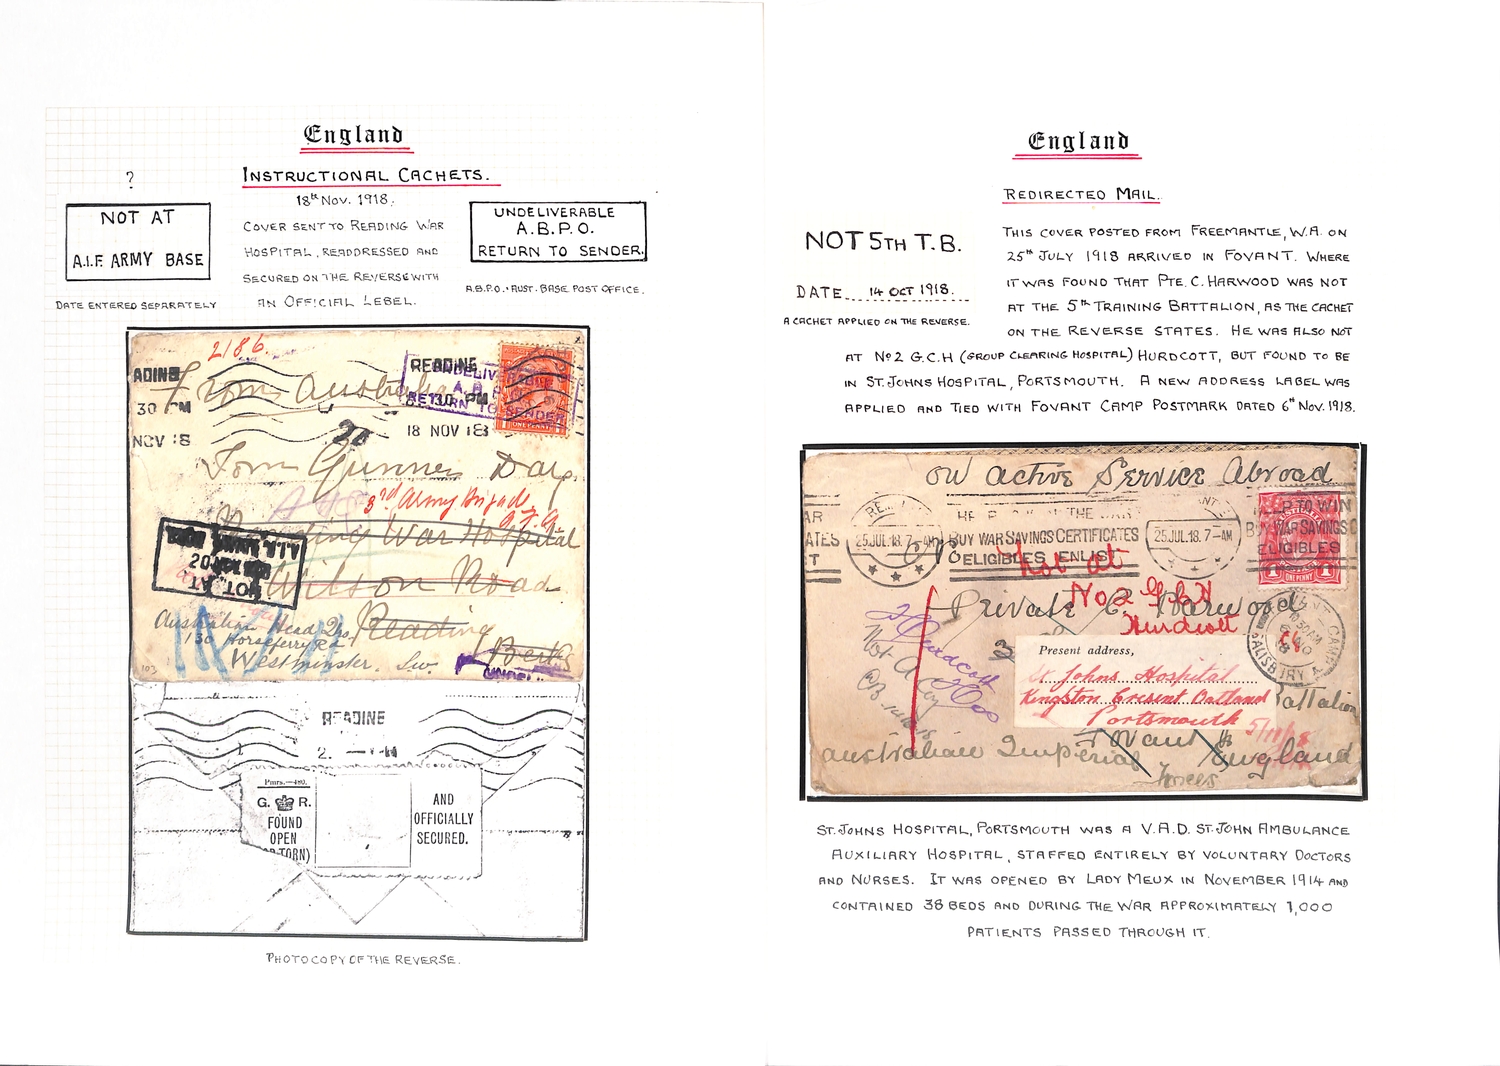 England
INSTRUCTIONAL CACHETS.
?
NOT AT
A.I.F. ARMY BASE
DATE ENTERED SEPARATELY
18th Nov. 1918.
COVER SENT TO READING WAR
HOSPITAL, READDRESSED AND
SECURED ON THE REVERSE WITH
AN OFFICIAL LEBEL.
UNDELIVERABLE
A.B.P.O.
RETURN TO SENDER.
A.B.P.O. = AUST. BASE POST OFFICE.
2186.
READING
30 PM
NOV 18
18 NOV 18
UNDELIV
A.B.
RETURN TO SENDER
ONE PENNY
From Australia
20
From Gunner Day
3rd Army Brigade
A.F.A.
Reading War Hospital
Wilson Road
Reading
Berks
NOT AT
20 NOV
A.I.F. ARMY BASE
Australian Head Qrs
130 Horseferry Rd
Westminster. Sw
103
READING
2.
Pmrs.—480.
G. R.
FOUND
OPEN
OR TORN)
AND
OFFICIALLY
SECURED.
PHOTOCOPY OF THE REVERSE.
England
REDIRECTED MAIL.
NOT 5TH T.B.
DATE 14 OCT 1918.
A CACHET APPLIED ON THE REVERSE.
THIS COVER POSTED FROM FREEMANTLE, W.A. ON
25th JULY 1918 ARRIVED IN FOVANT. WHERE
IT WAS FOUND THAT PTE. C. HARWOOD WAS NOT
AT THE 5th TRAINING BATTALION, AS THE CACHET
ON THE REVERSE STATES. HE WAS ALSO NOT
AT No 2 G.C.H (GROUP CLEARING HOSPITAL) HURDCOTT, BUT FOUND TO BE
IN ST. JOHNS HOSPITAL, PORTSMOUTH. A NEW ADDRESS LABEL WAS
APPLIED AND TIED WITH FOVANT CAMP POSTMARK DATED 6th NOV. 1918.
On Active Service Abroad
25 JUL.18. 7-AM
BUY WAR SAVINGS CERTIFICATES
ELIGIBLES ENLIST
25 JUL.18. 7-AM
KEEP TO WIN
BUY WAR SAVINGS C
ELIGIBLES
ONE PENNY
Not at
No 2 G.C.H
Hurdcott
Private C. Harwood
Hurdcott
Present address,
St Johns Hospital
Kingston Cresent Batland
Portsmouth
CAMP
SALISBURY
Battalion
5/11/18
Fovant
Australian Imperial
Forces
England
ST. JOHNS HOSPITAL, PORTSMOUTH WAS A V.A.D. ST. JOHN AMBULANCE
AUXILIARY HOSPITAL, STAFFED ENTIRELY BY VOLUNTARY DOCTORS
AND NURSES. IT WAS OPENED BY LADY MEUX IN NOVEMBER 1914 AND
CONTAINED 38 BEDS AND DURING THE WAR APPROXIMATELY 1,000
PATIENTS PASSED THROUGH IT.